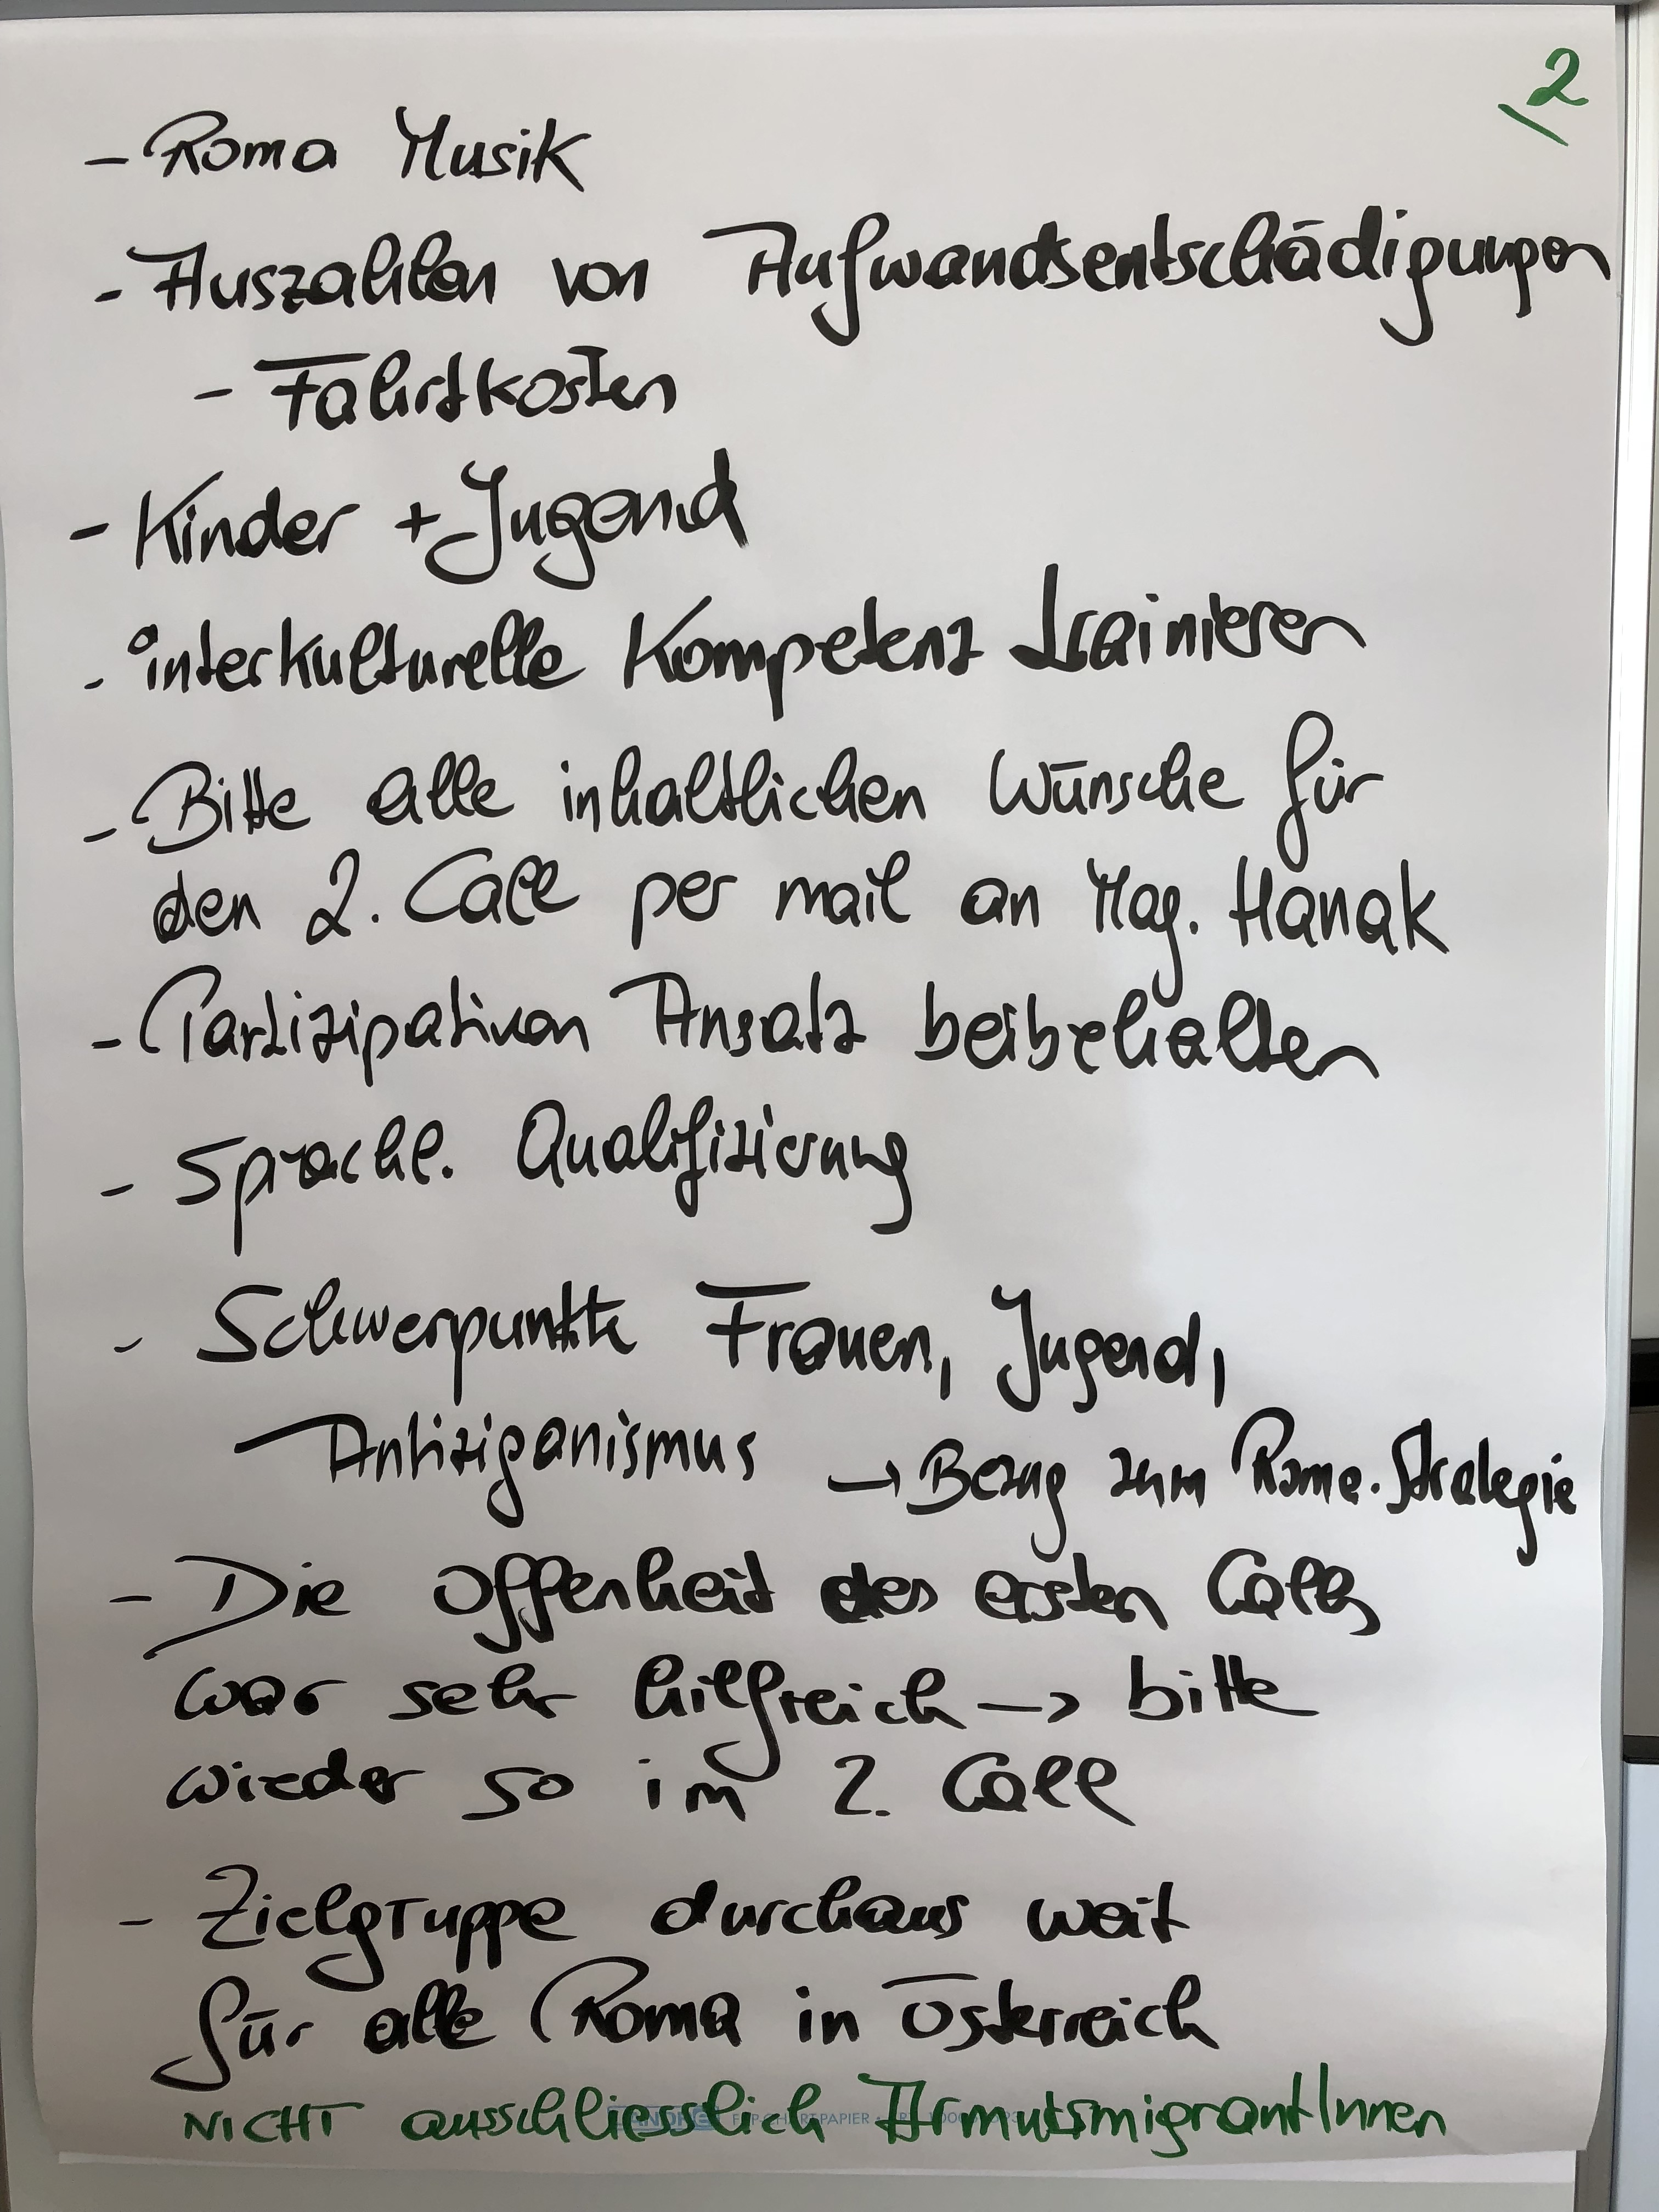 2
- Roma Musik
- Auszahlen von Aufwandsentschädigungen
- Fahrtkosten
- Kinder + Jugend
- interkulturelle Kompetenz trainieren
- Bitte alle inhaltlichen Wünsche für
den 2. Call per mail an Mag. Hanak
- Partizipativen Ansatz beibehalten
- Sprachl. Qualifizierung
- Schwerpunkte Frauen, Jugend,
Antiziganismus → Bezug zum Roma-Strategie
- Die Offenheit des ersten Calls
war sehr hilfreich → bitte
wieder so im 2. Call
- Zielgruppe durchaus weit
für alle Roma in Österreich
NICHT ausschliesslich ArmutsmigrantInnen